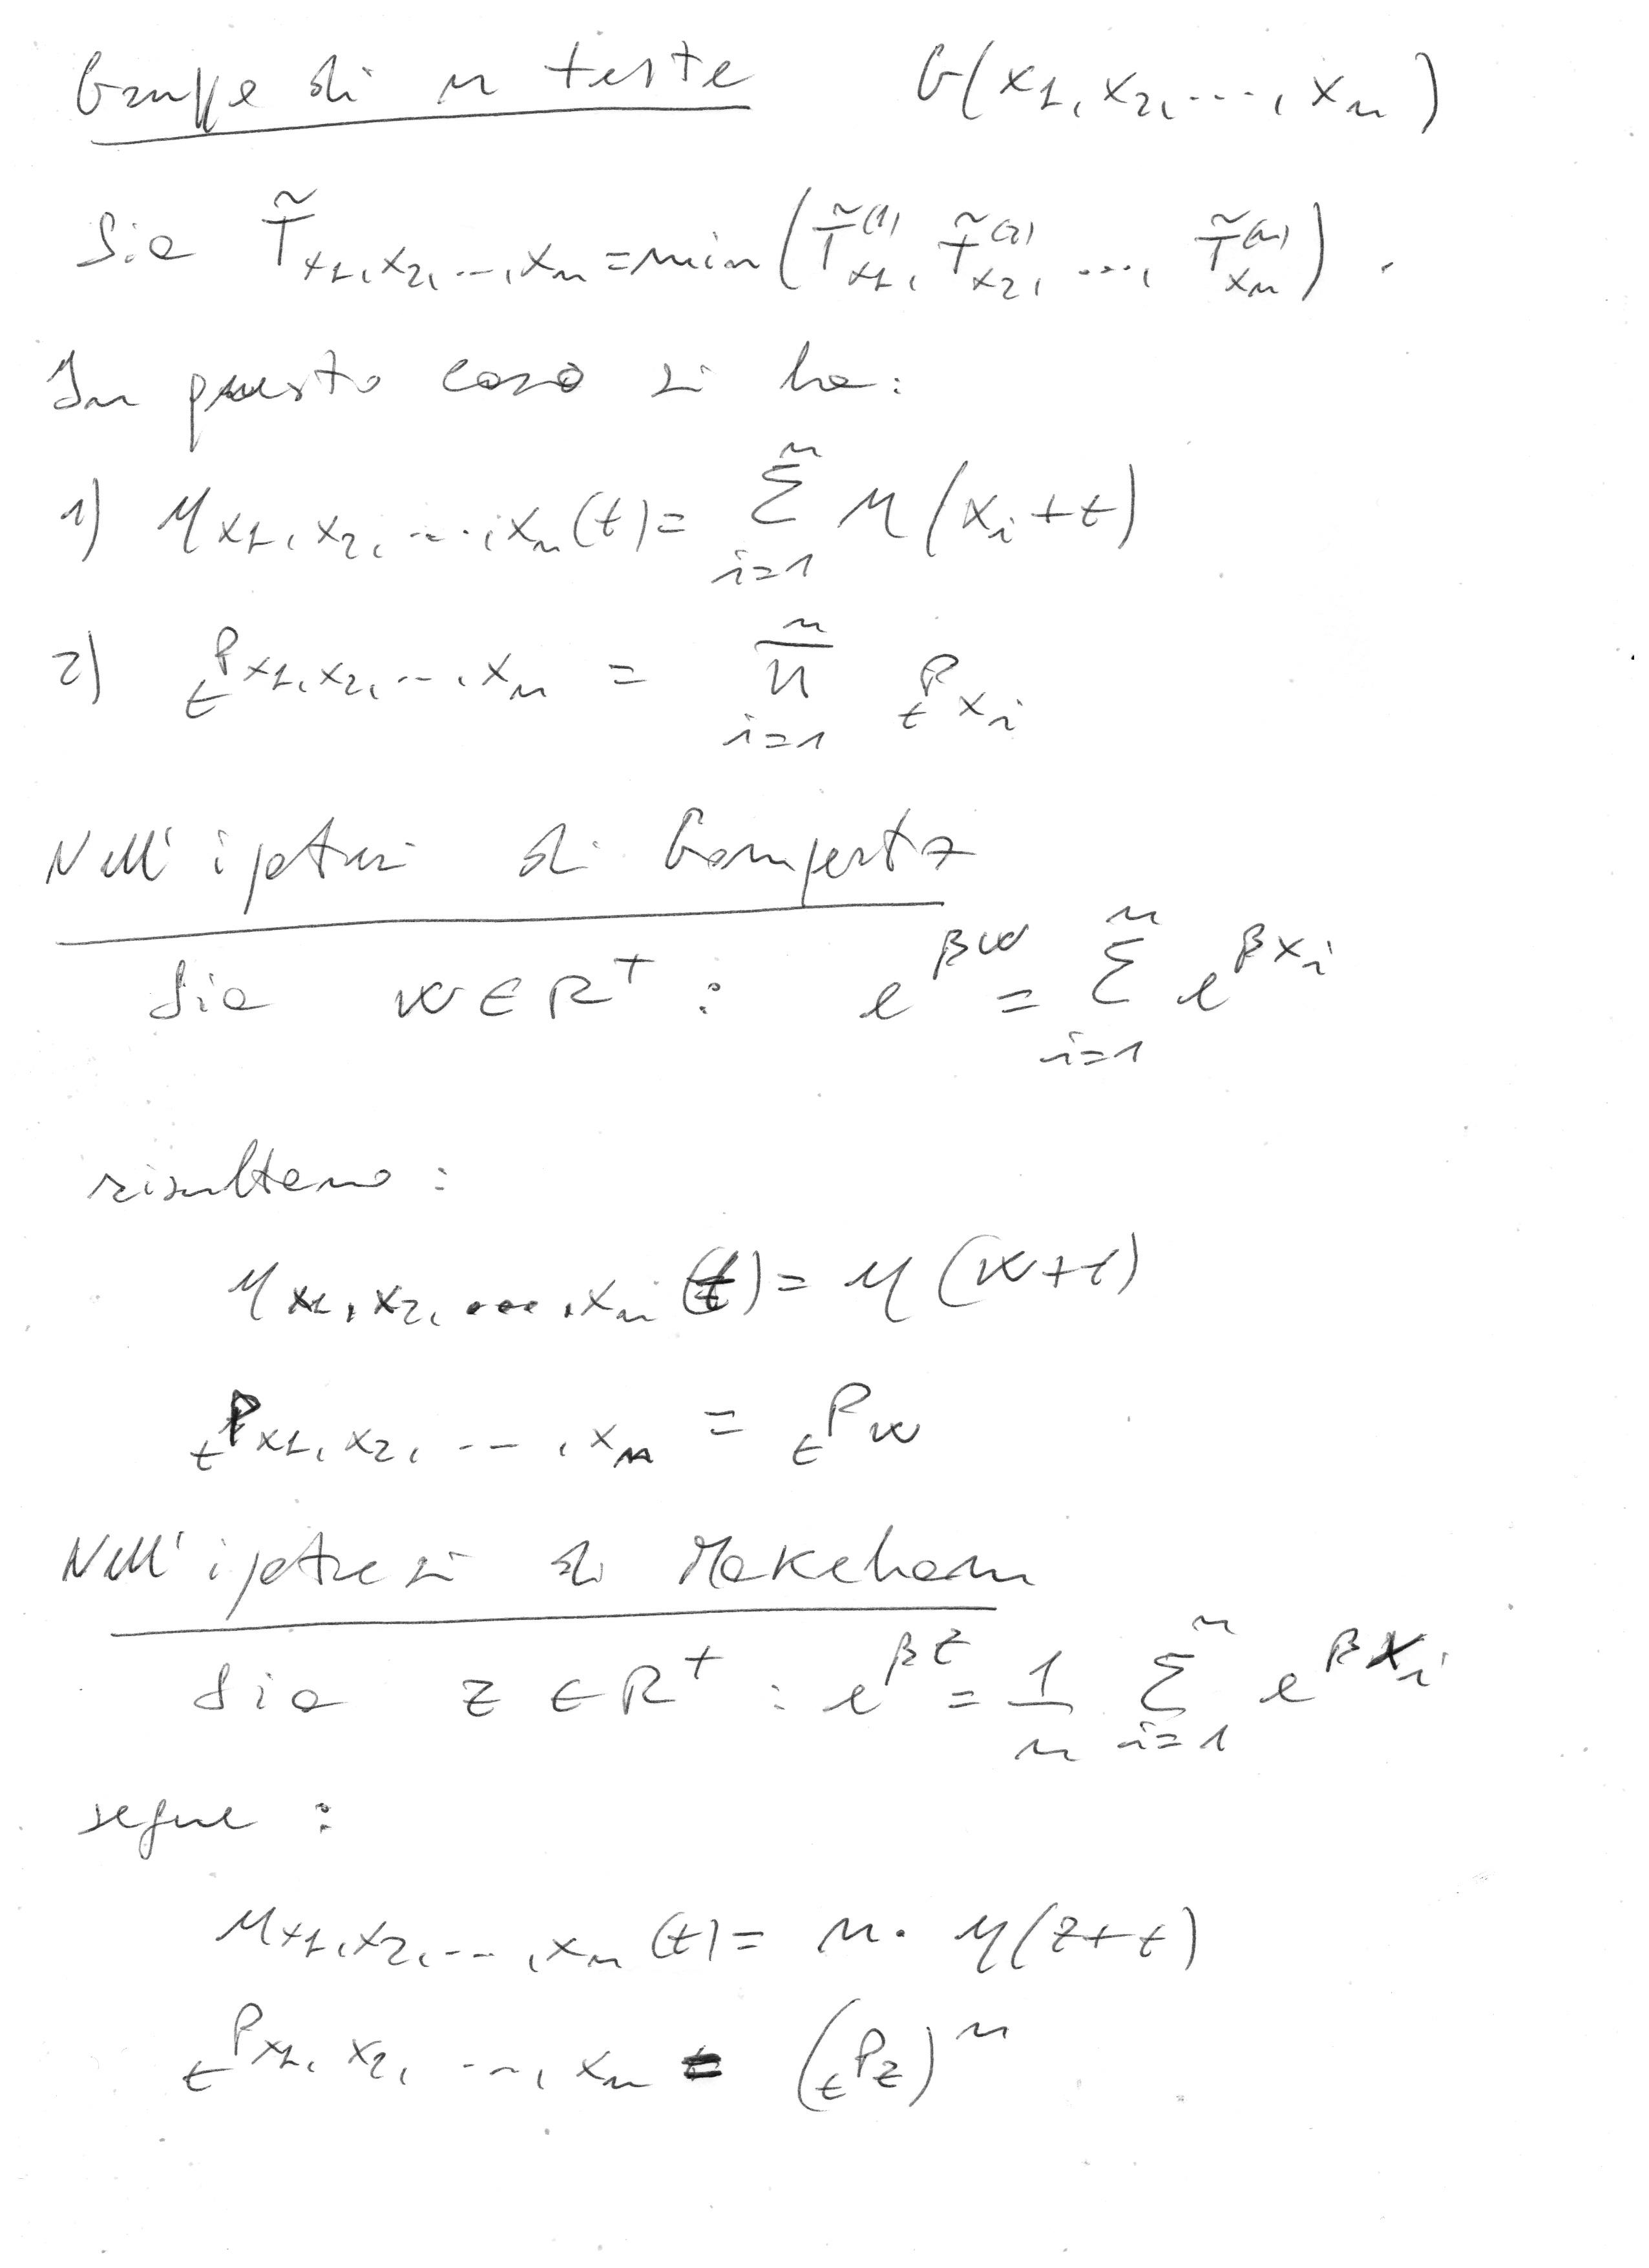 Gruppo di n teste G(x1, x2, ..., xn)
Sia T̃ x1, x2, ..., xn = min(T̃x1^(1), T̃x2^(2), ..., T̃xn^(n)).
In questo caso si ha:
1) μ x1, x2, ..., xn (t) = Σ_{i=1}^{n} μ(xi + t)
2) tP x1, x2, ..., xn = Π_{i=1}^{n} tP xi
Nell'ipotesi di Gompertz
Sia w ∈ R⁺ : e^{βw} = Σ_{i=1}^{n} e^{βxi}
risultano :
μ x1, x2, ..., xn (t) = μ(w + t)
tP x1, x2, ..., xn = tP w
Nell'ipotesi di Makeham
Sia z ∈ R⁺ : e^{βz} = 1/n Σ_{i=1}^{n} e^{βxi}
segue :
μ x1, x2, ..., xn (t) = n · μ(z + t)
tP x1, x2, ..., xn = (tPz)^n